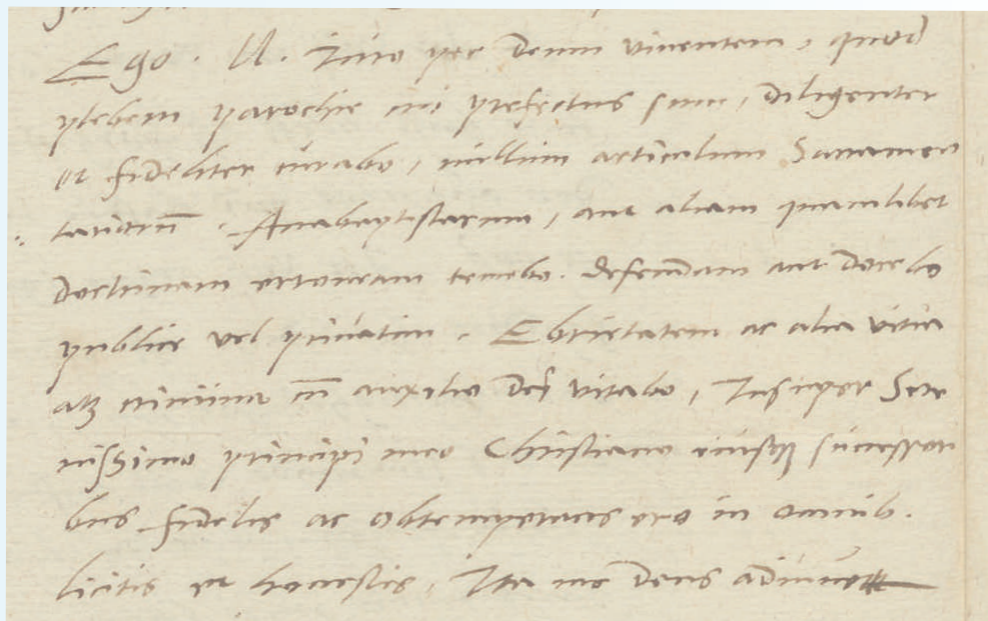 Ego. N. Iuro per deum viventem, quod
plebem parochie cui prefectus sum, diligenter
et fideliter curabo, nullum articulum Sacramen
tariorū, Anabaptistarum, aut aliam quamlibet
doctrinam erroneam tenebo. defendam aut docebo
publice vel privatim. Ebrietatem ac alia vitia
atq crimina cū auxilio dei vitabo, Insuper Sere
nissimo principi meo Christiano eiusq successori
bus fidelis ac obtemperans ero in omnib.
licitis et honestis, Ita me deus adiuvet